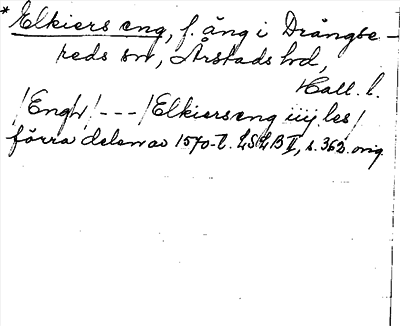 * Elkiers eng, f. äng i Drängse-
reds sn, Årstads hd,
Hall. l.
/Engh/ --- /Elkiers eng iiij les/
förra delen av 1570-t. LSLB II, s. 362. orig.